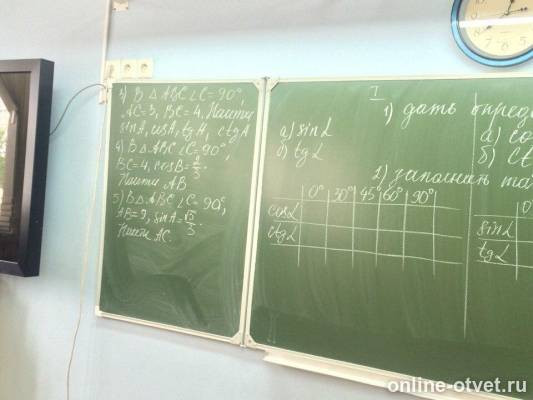 3) В △ ABC ∠C=90°,
AC=3, BC=4, Найти
sinA, cosA, tgA, ctgA
4) В △ ABC ∠C=90°,
BC=4, cosB=2/3
Найти AB
5) В △ ABC ∠C=90°,
AB=9, sinA=√5/3.
Найти AC.
I
1) дать опред
а) sinα
б) tgα
а) co
б) ct
2) заполнить та
0° 30° 45° 60° 90°
cosα
ctgα
0
sinα
tgα
online-otvet.ru